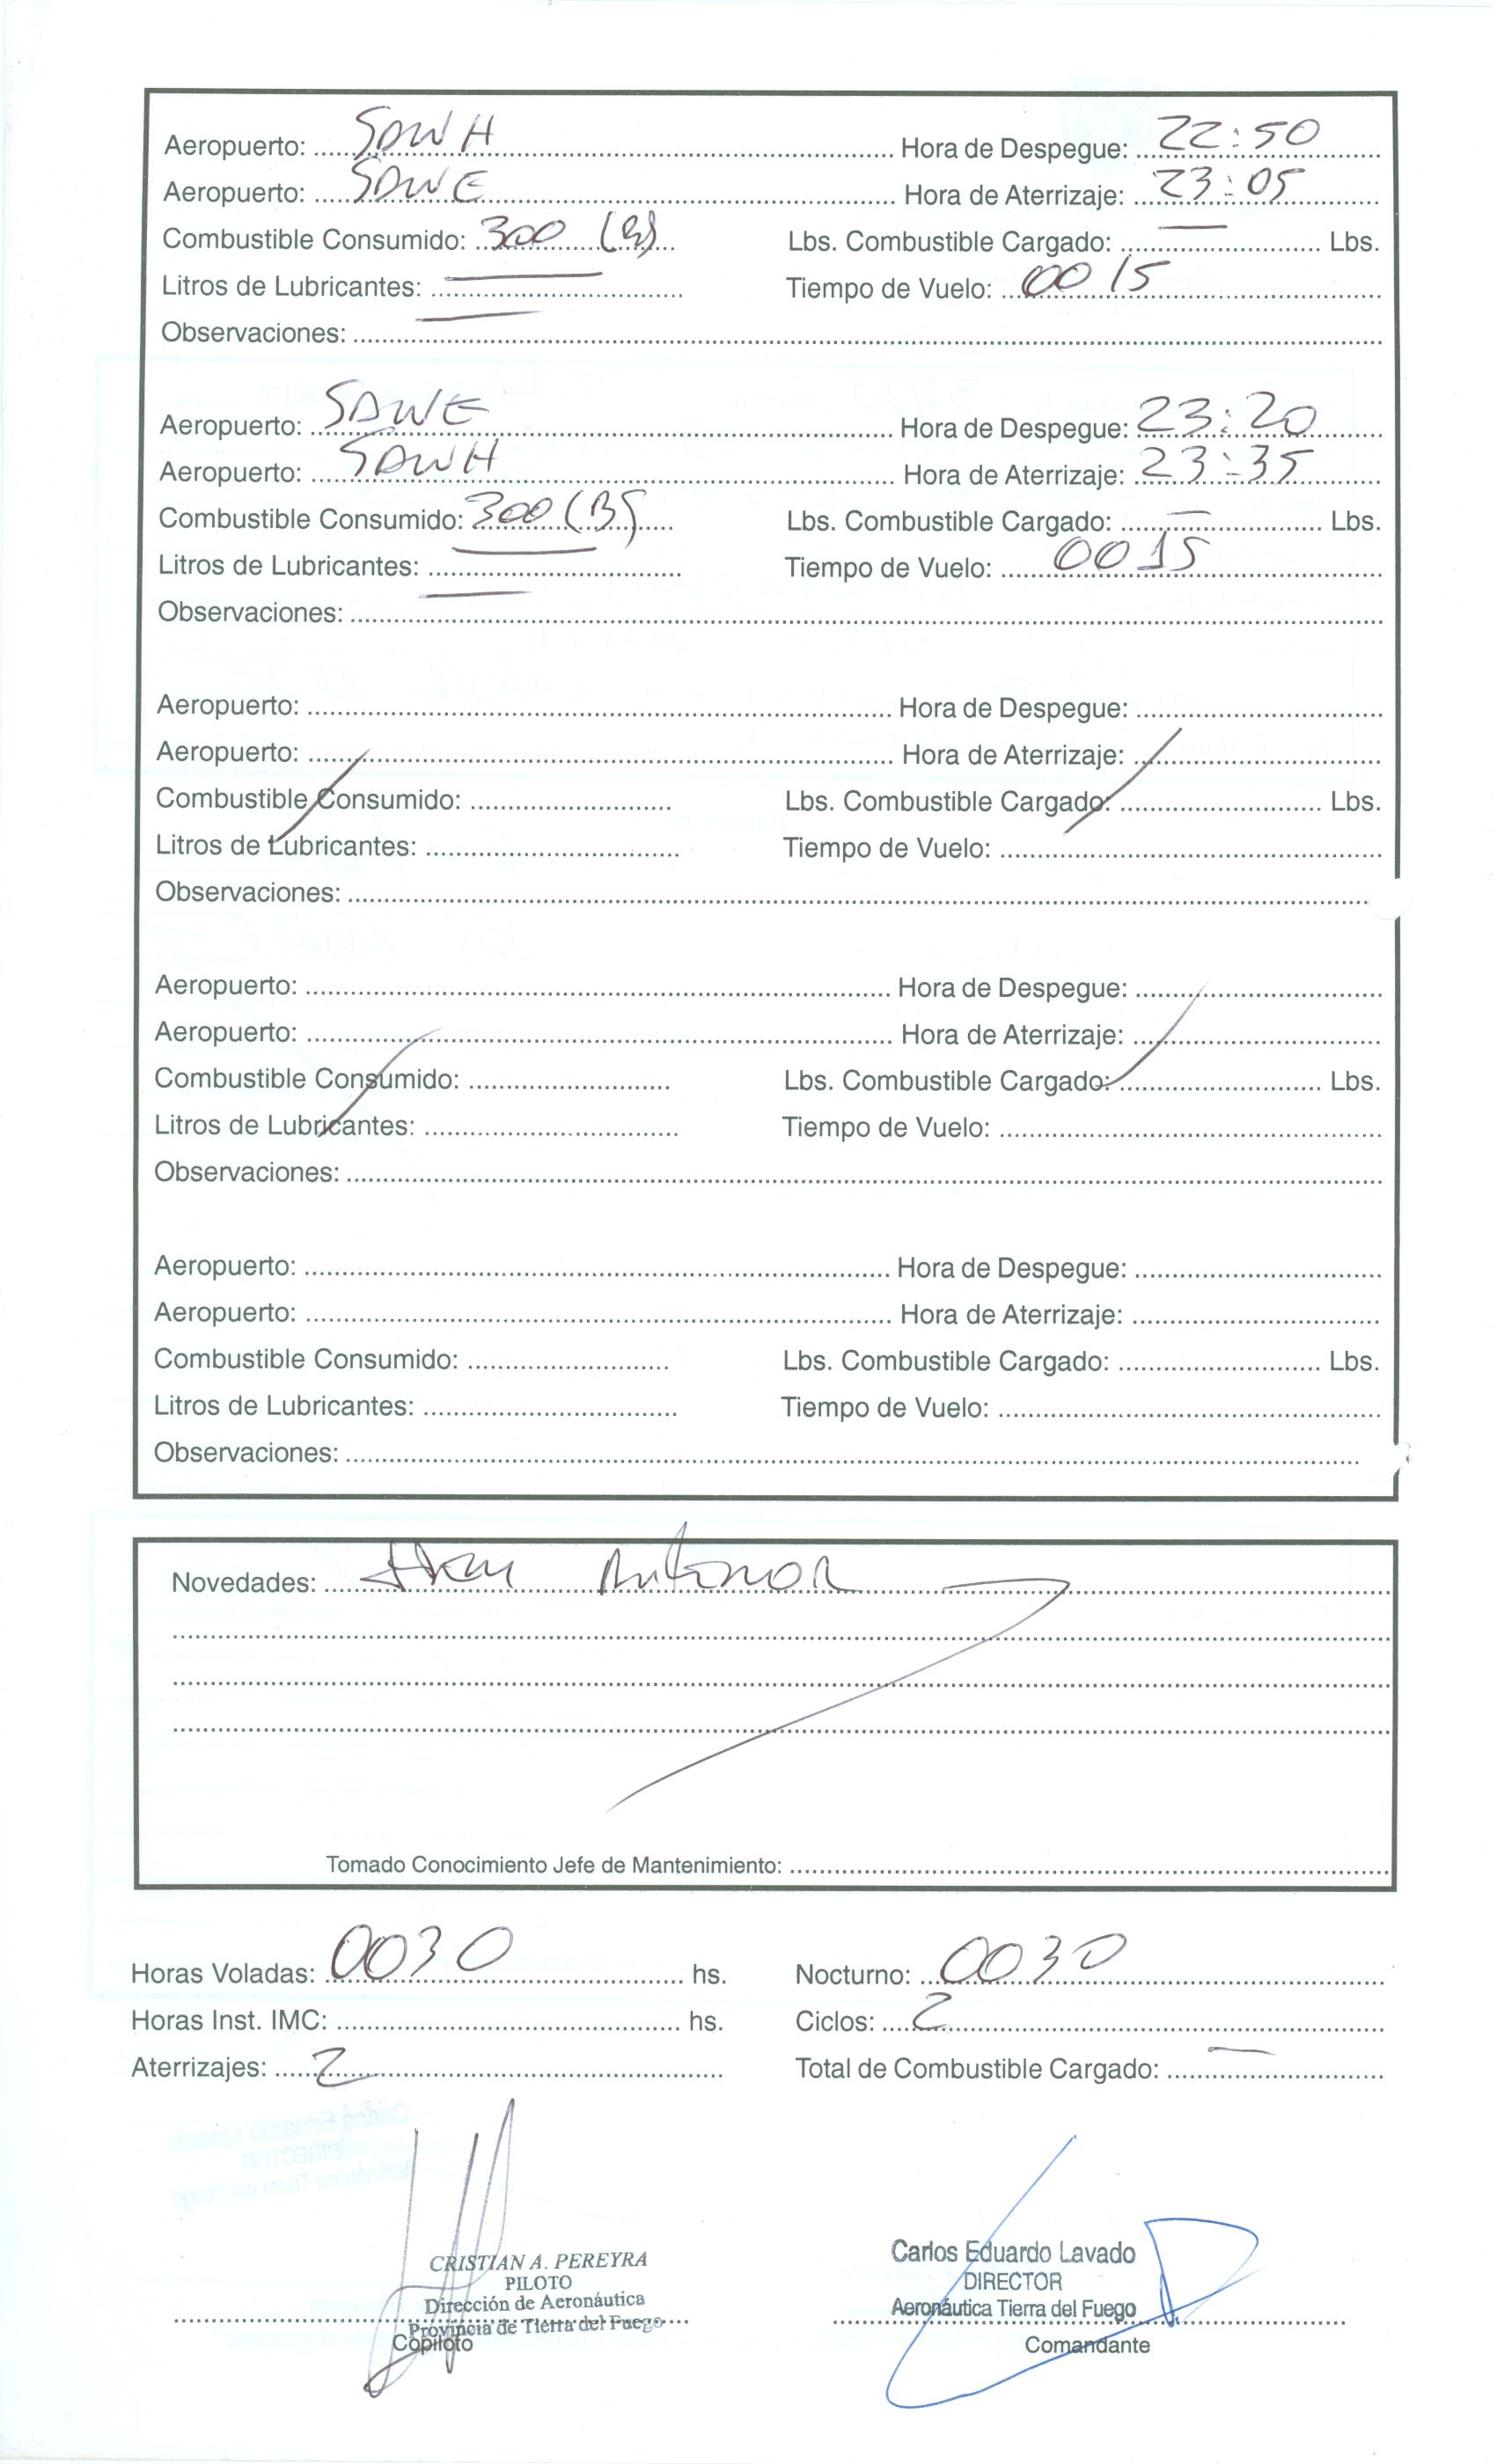 Aeropuerto: SAWH Hora de Despegue: 22:50
Aeropuerto: SAWE Hora de Aterrizaje: 23:05
Combustible Consumido: 300 Lbs. Combustible Cargado: — Lbs.
Litros de Lubricantes: — Tiempo de Vuelo: 00 15
Observaciones: —
Aeropuerto: SAWE Hora de Despegue: 23:20
Aeropuerto: SAWH Hora de Aterrizaje: 23:35
Combustible Consumido: 300 Lbs. Combustible Cargado: — Lbs.
Litros de Lubricantes: — Tiempo de Vuelo: 0015
Observaciones: —
Aeropuerto: Hora de Despegue:
Aeropuerto: Hora de Aterrizaje:
Combustible Consumido: Lbs. Combustible Cargado: Lbs.
Litros de Lubricantes: Tiempo de Vuelo:
Observaciones:
Aeropuerto: Hora de Despegue:
Aeropuerto: Hora de Aterrizaje:
Combustible Consumido: Lbs. Combustible Cargado: Lbs.
Litros de Lubricantes: Tiempo de Vuelo:
Observaciones:
Aeropuerto: Hora de Despegue:
Aeropuerto: Hora de Aterrizaje:
Combustible Consumido: Lbs. Combustible Cargado: Lbs.
Litros de Lubricantes: Tiempo de Vuelo:
Observaciones:
Novedades: Anterior
Tomado Conocimiento Jefe de Mantenimiento:
Horas Voladas: 0030 hs. Nocturno: 0030
Horas Inst. IMC: hs. Ciclos: 2
Aterrizajes: 2 Total de Combustible Cargado: —
CRISTIAN A. PEREYRA
PILOTO
Dirección de Aeronáutica
Provincia de Tierra del Fuego
Copiloto
Carlos Eduardo Lavado
DIRECTOR
Aeronáutica Tierra del Fuego
Comandante